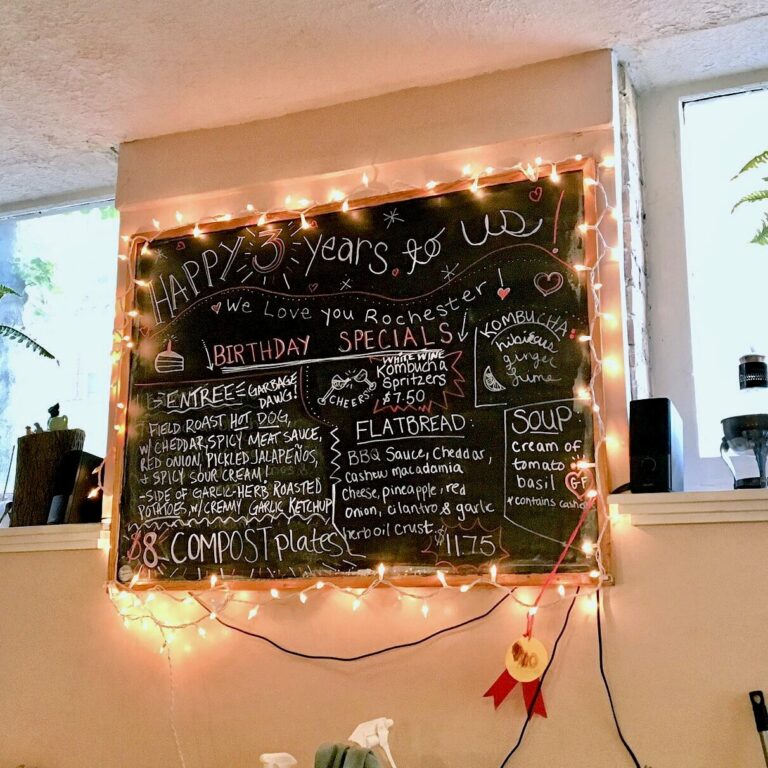 HAPPY 3 years to us!
We Love you Rochester!
BIRTHDAY SPECIALS
ENTREE GARBAGE DAWG!
FIELD ROAST HOT DOG,
w/ CHEDDAR, SPICY MEAT SAUCE,
RED ONION, PICKLED JALAPEÑOS,
& SPICY SOUR CREAM!
-SIDE OF GARLIC-HERB ROASTED
POTATOES, w/ CREAMY GARLIC KETCHUP
$8 COMPOST plates
CHEERS!
WHITE WINE
Kombucha
Spritzers
$7.50
FLATBREAD:
BBQ Sauce, Cheddar,
cashew macadamia
cheese, pineapple, red
onion, cilantro & garlic
herb oil crust.
$11.75
KOMBUCHA:
hibiscus
ginger
lime
SOUP
cream of
tomato
basil
GF
* contains cashew